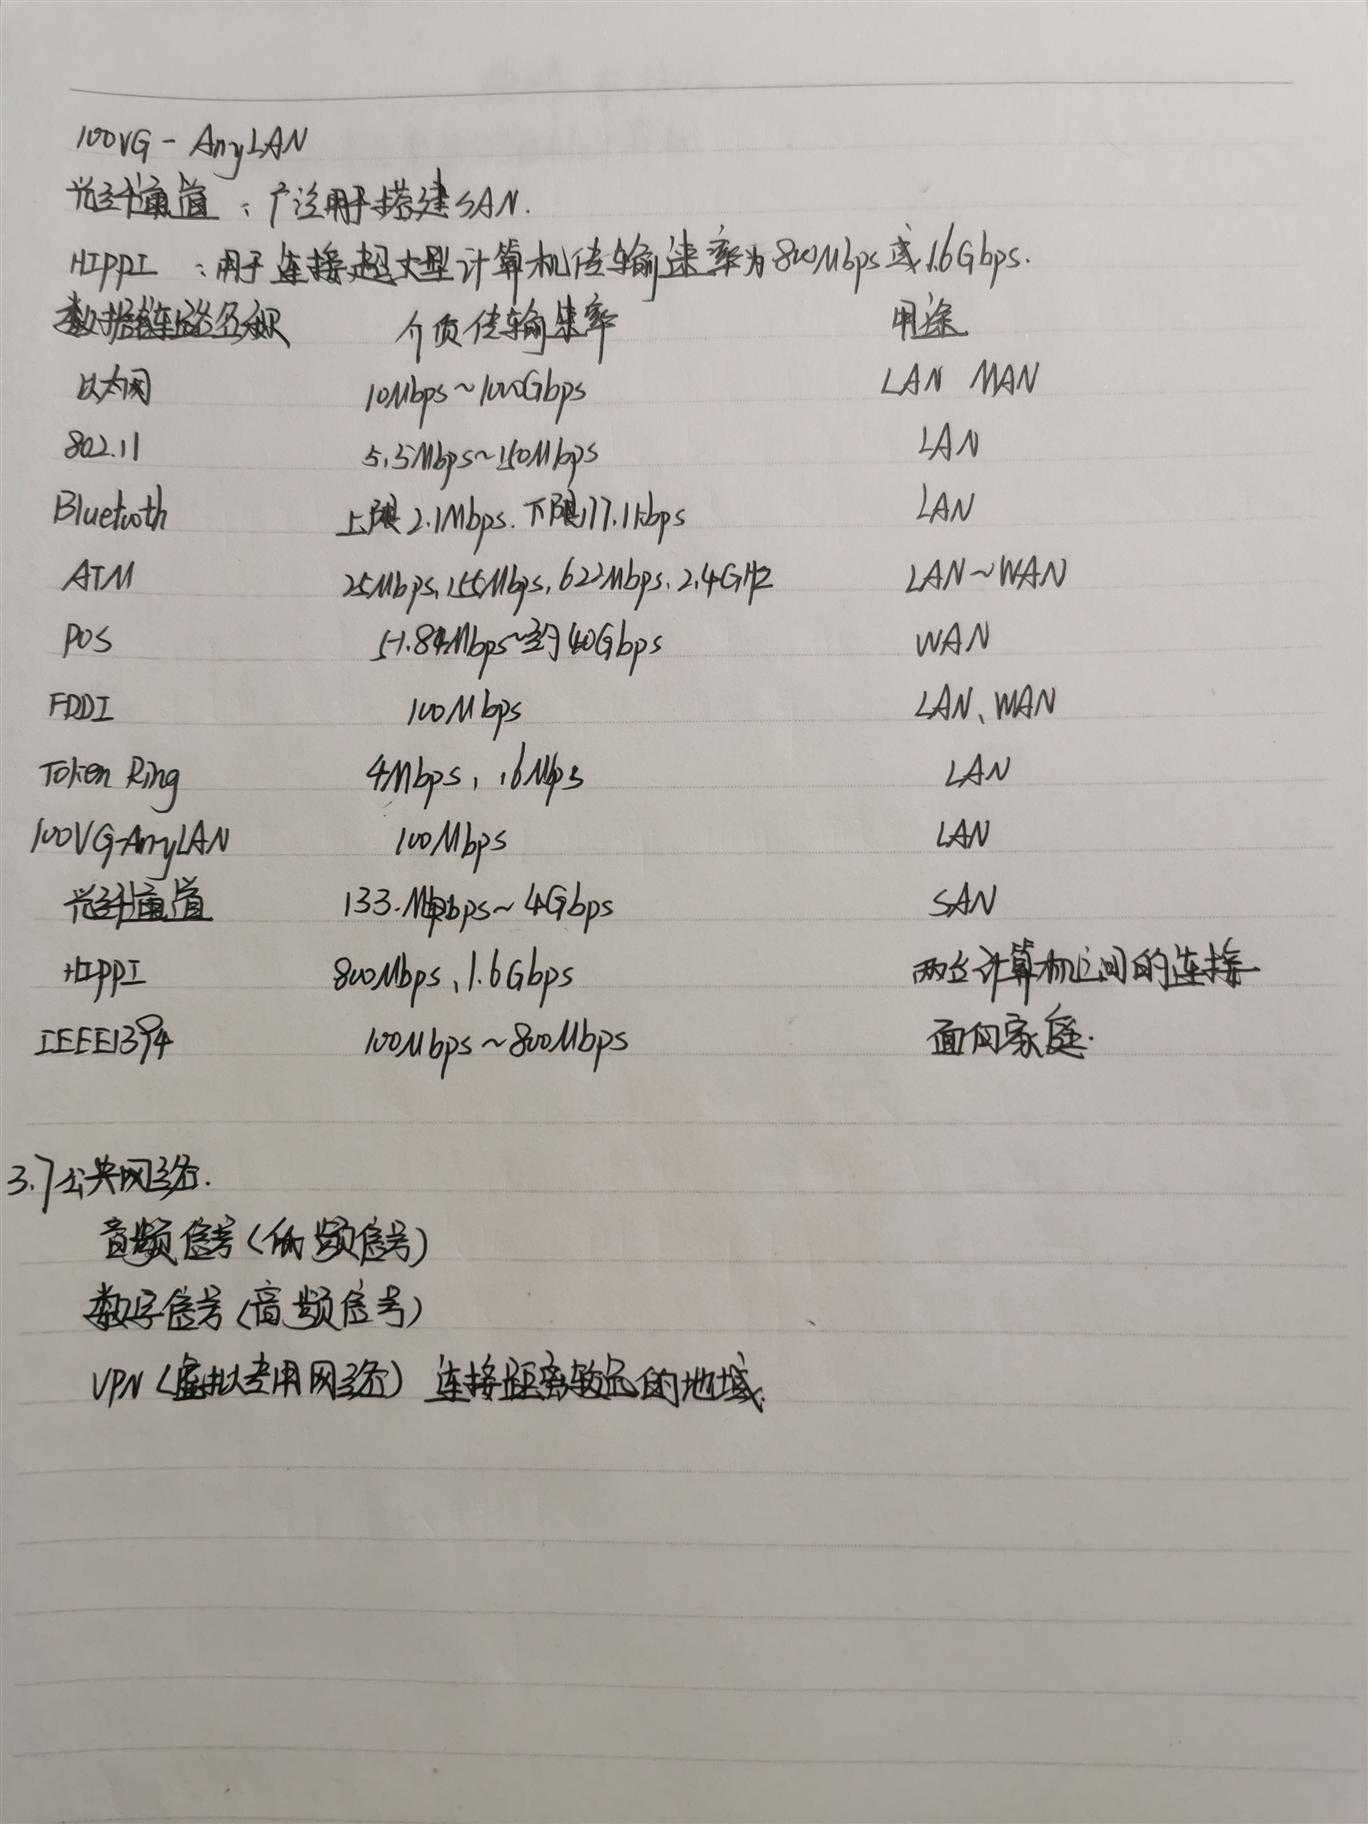 100VG-AnyLAN
光纤通道：广泛用于搭建SAN.
HIPPI：用于连接超大型计算机传输速率为800Mbps或1.6Gbps.
数据链路名称 介质传输速率 用途
以太网 10Mbps~100Gbps LAN MAN
802.11 5.5Mbps~150Mbps LAN
Bluetooth 上限2.1Mbps.下限177.1kbps LAN
ATM 25Mbps,155Mbps,622Mbps.2.4GHz LAN~WAN
POS 51.84Mbps~约40Gbps WAN
FDDI 100Mbps LAN、MAN
Token Ring 4Mbps, 16Mbps LAN
100VG-AnyLAN 100Mbps LAN
光纤通道 133.Mbps~4Gbps SAN
HIPPI 800Mbps、1.6Gbps 两台计算机之间的连接
IEEE1394 100Mbps~800Mbps 面向家庭.
3.7公共网络.
音频信号(低频信号)
数字信号(音频信号)
VPN(虚拟专用网络) 连接距离较远的地域.